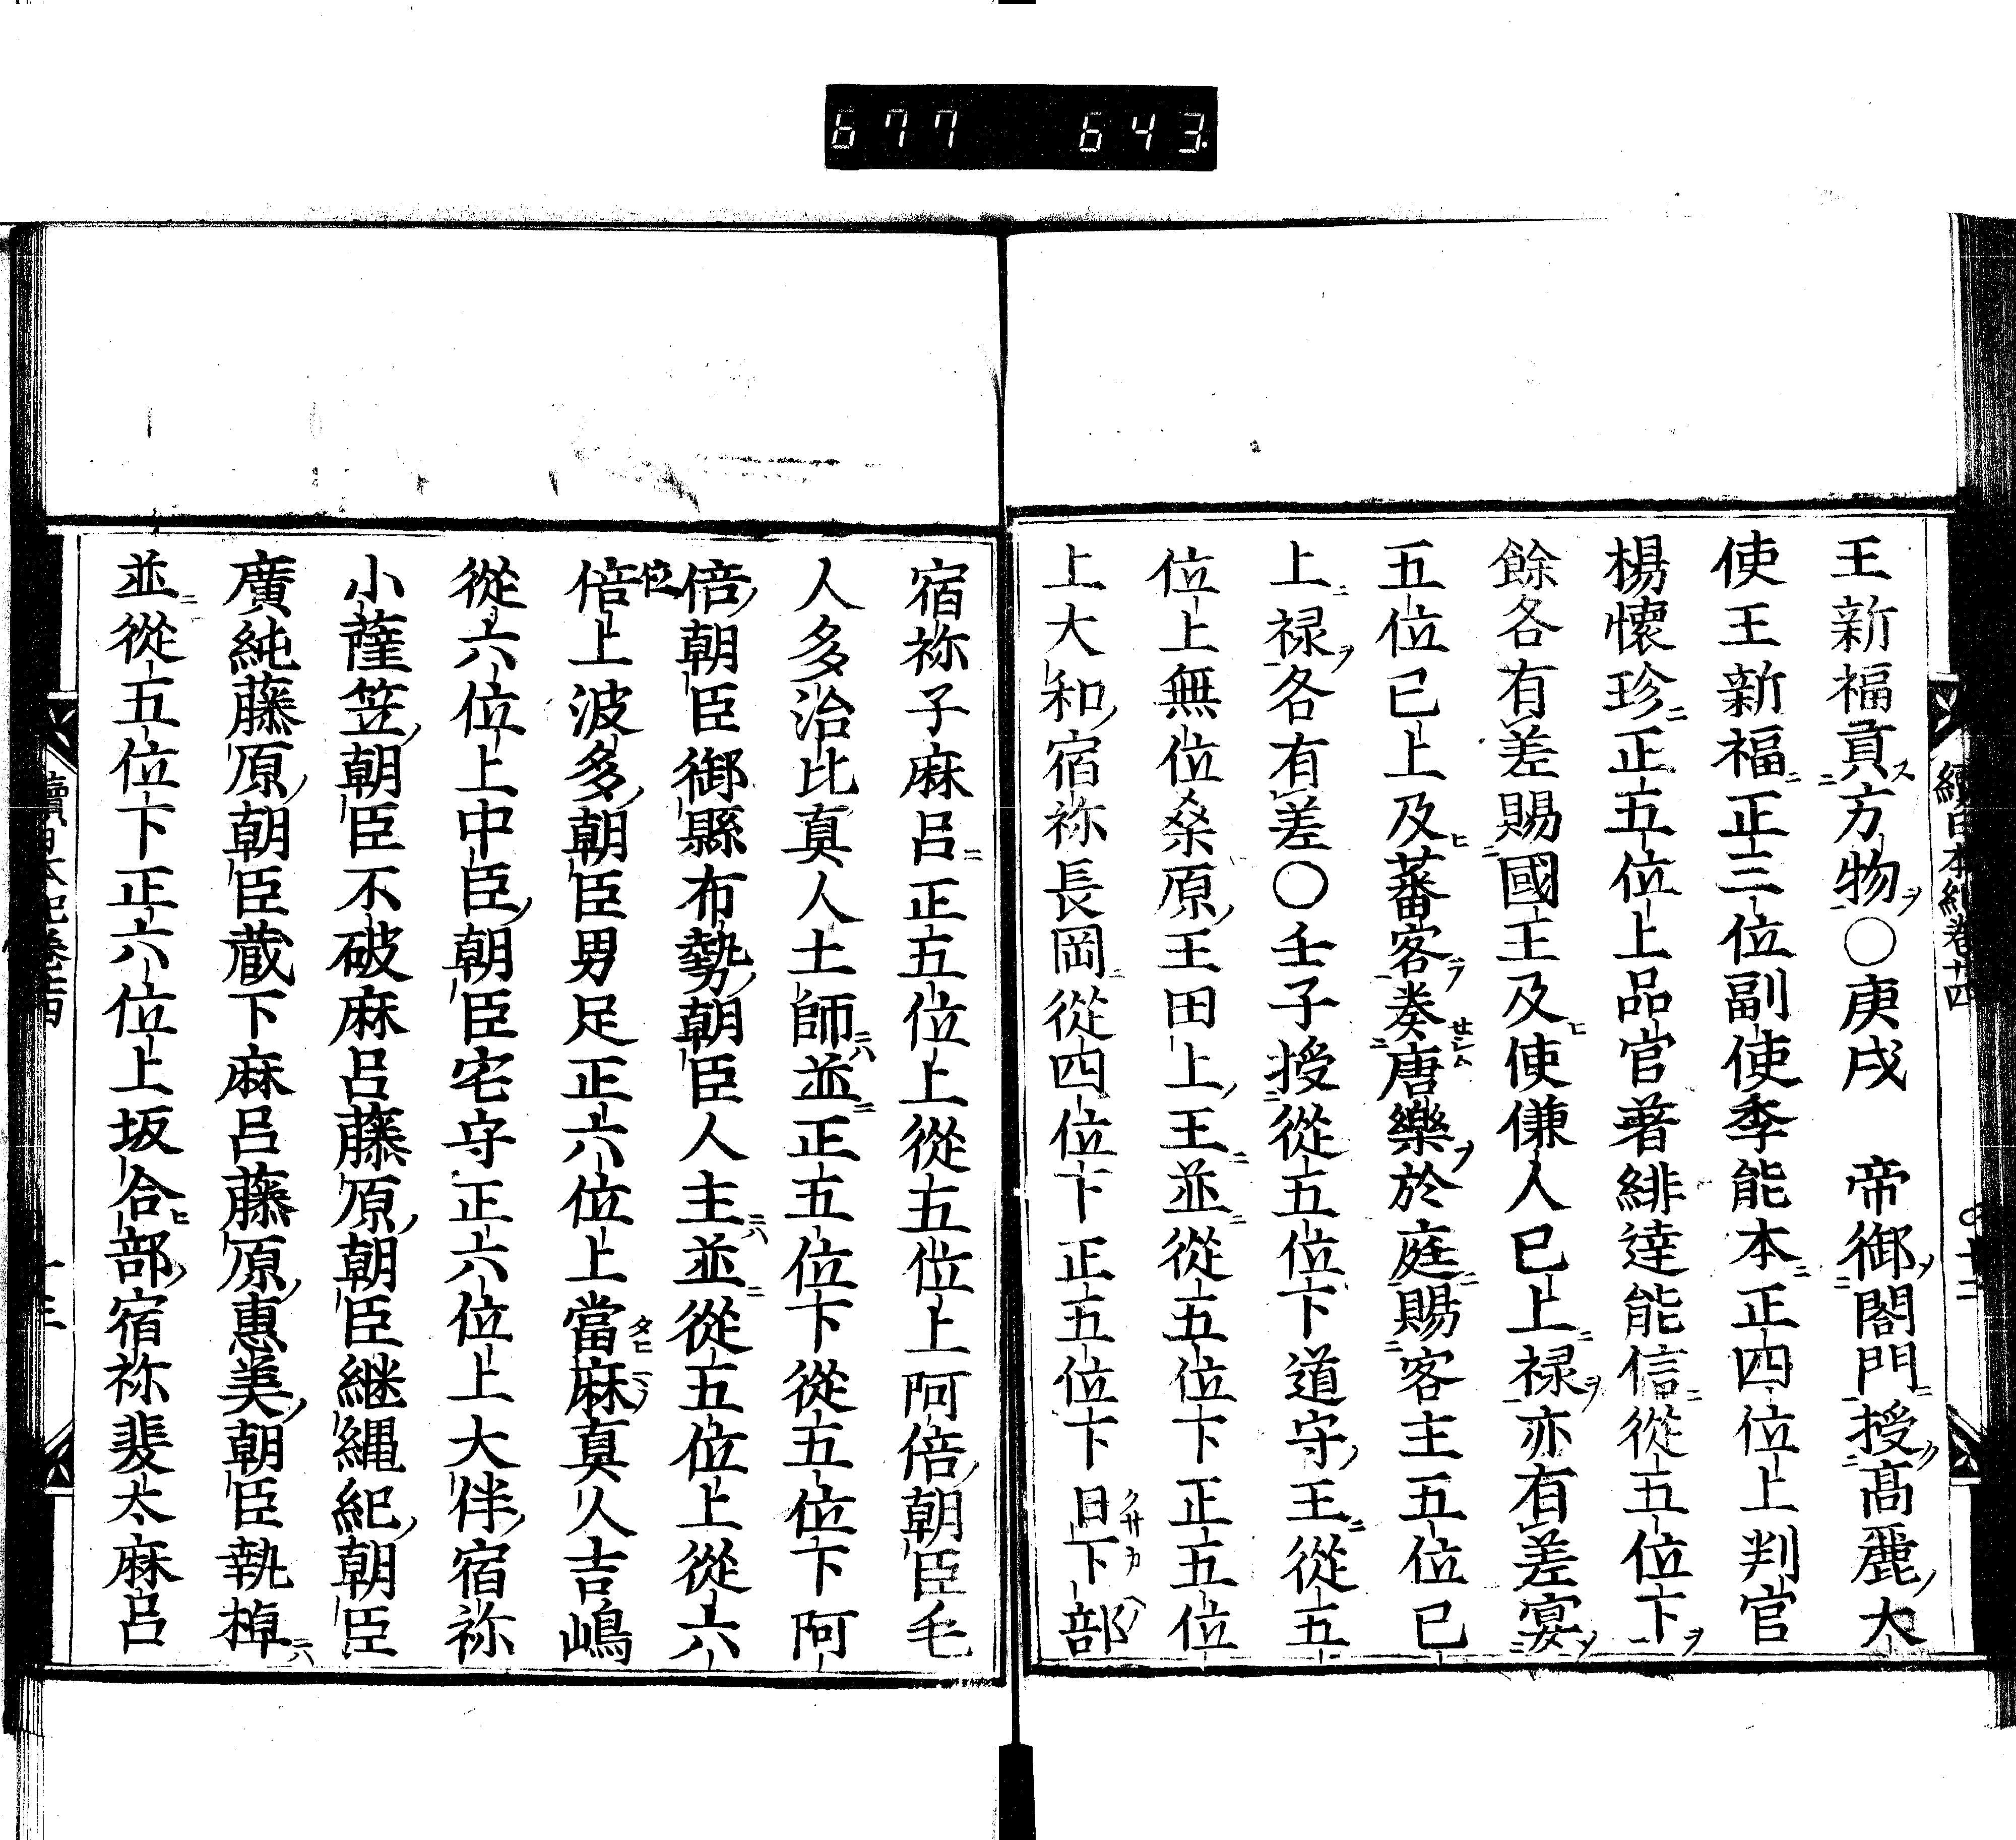 677 643
續日本紀卷廿四
王新福貢方物○庚戌 帝御閤門授髙麗大
使王新福正三位副使李能本正四位上判官
楊懷珍正五位上品官著緋達能信從五位下
餘各有差賜國王及使傔人已上禄亦有差宴
五位已上及蕃客奏唐樂於庭賜客主五位已
上禄各有差○壬子授從五位下道守王從五
位上無位桒原王田上王並從五位下正五位
上大和宿祢長岡從四位下正五位下日下部
宿祢子麻吕正五位上從五位上阿倍朝臣毛
人多治比真人土師並正五位下從五位下阿
倍朝臣御縣布勢朝臣人主並從五位上從六
倍位上波多朝臣男足正六位上當麻真人吉嶋
從六位上中臣朝臣宅守正六位上大伴宿祢
小薩笠朝臣不破麻吕藤原朝臣継縄紀朝臣
廣純藤原朝臣蔵下麻吕藤原惠美朝臣執棹
並從五位下正六位上坂合部宿祢斐太麻吕